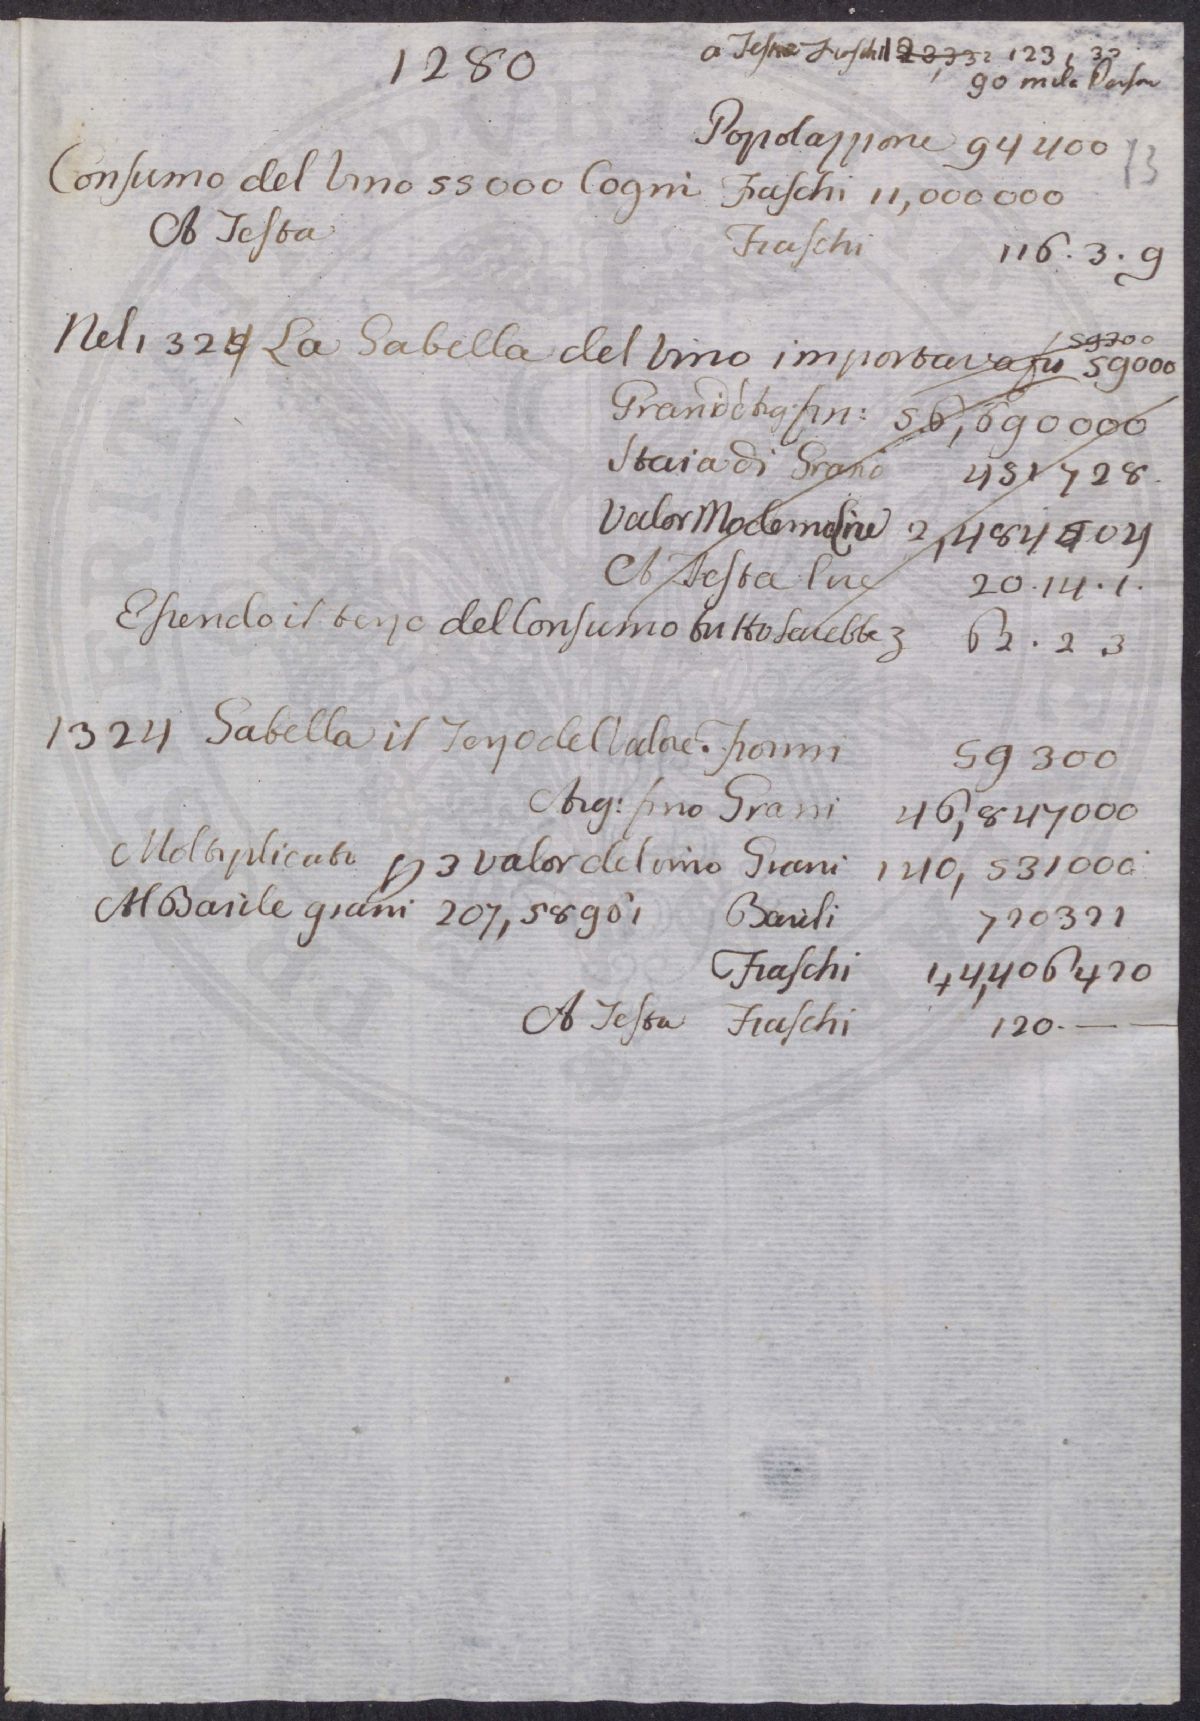 1280
a Testa Fiaschi 123,33
90 mila Person
Popolazzione 94400
13
Consumo del Vino 55000 Cogni Fiaschi 11,000000
A Testa Fiaschi 116.3.9
59300
Nel 1324 La Gabella del Vino importava fio 59000
Grani d'arg: fin: 56,690000
Staia di Grano 451728.
Valor Moderno lire 2,484504
A Testa lire 20.14.1.
Essendo il terzo del Consumo tutto sarebbe 62.2.3
1324 Gabella il Terzo del Valore. fiorini 59300
Arg: fino Grani 46,847000
Moltiplicato p 3 valor del vino Grani 140,531000
Al Barile grani 207,58961 Barili 720321
Fiaschi 14,406420
A Testa Fiaschi 120.——